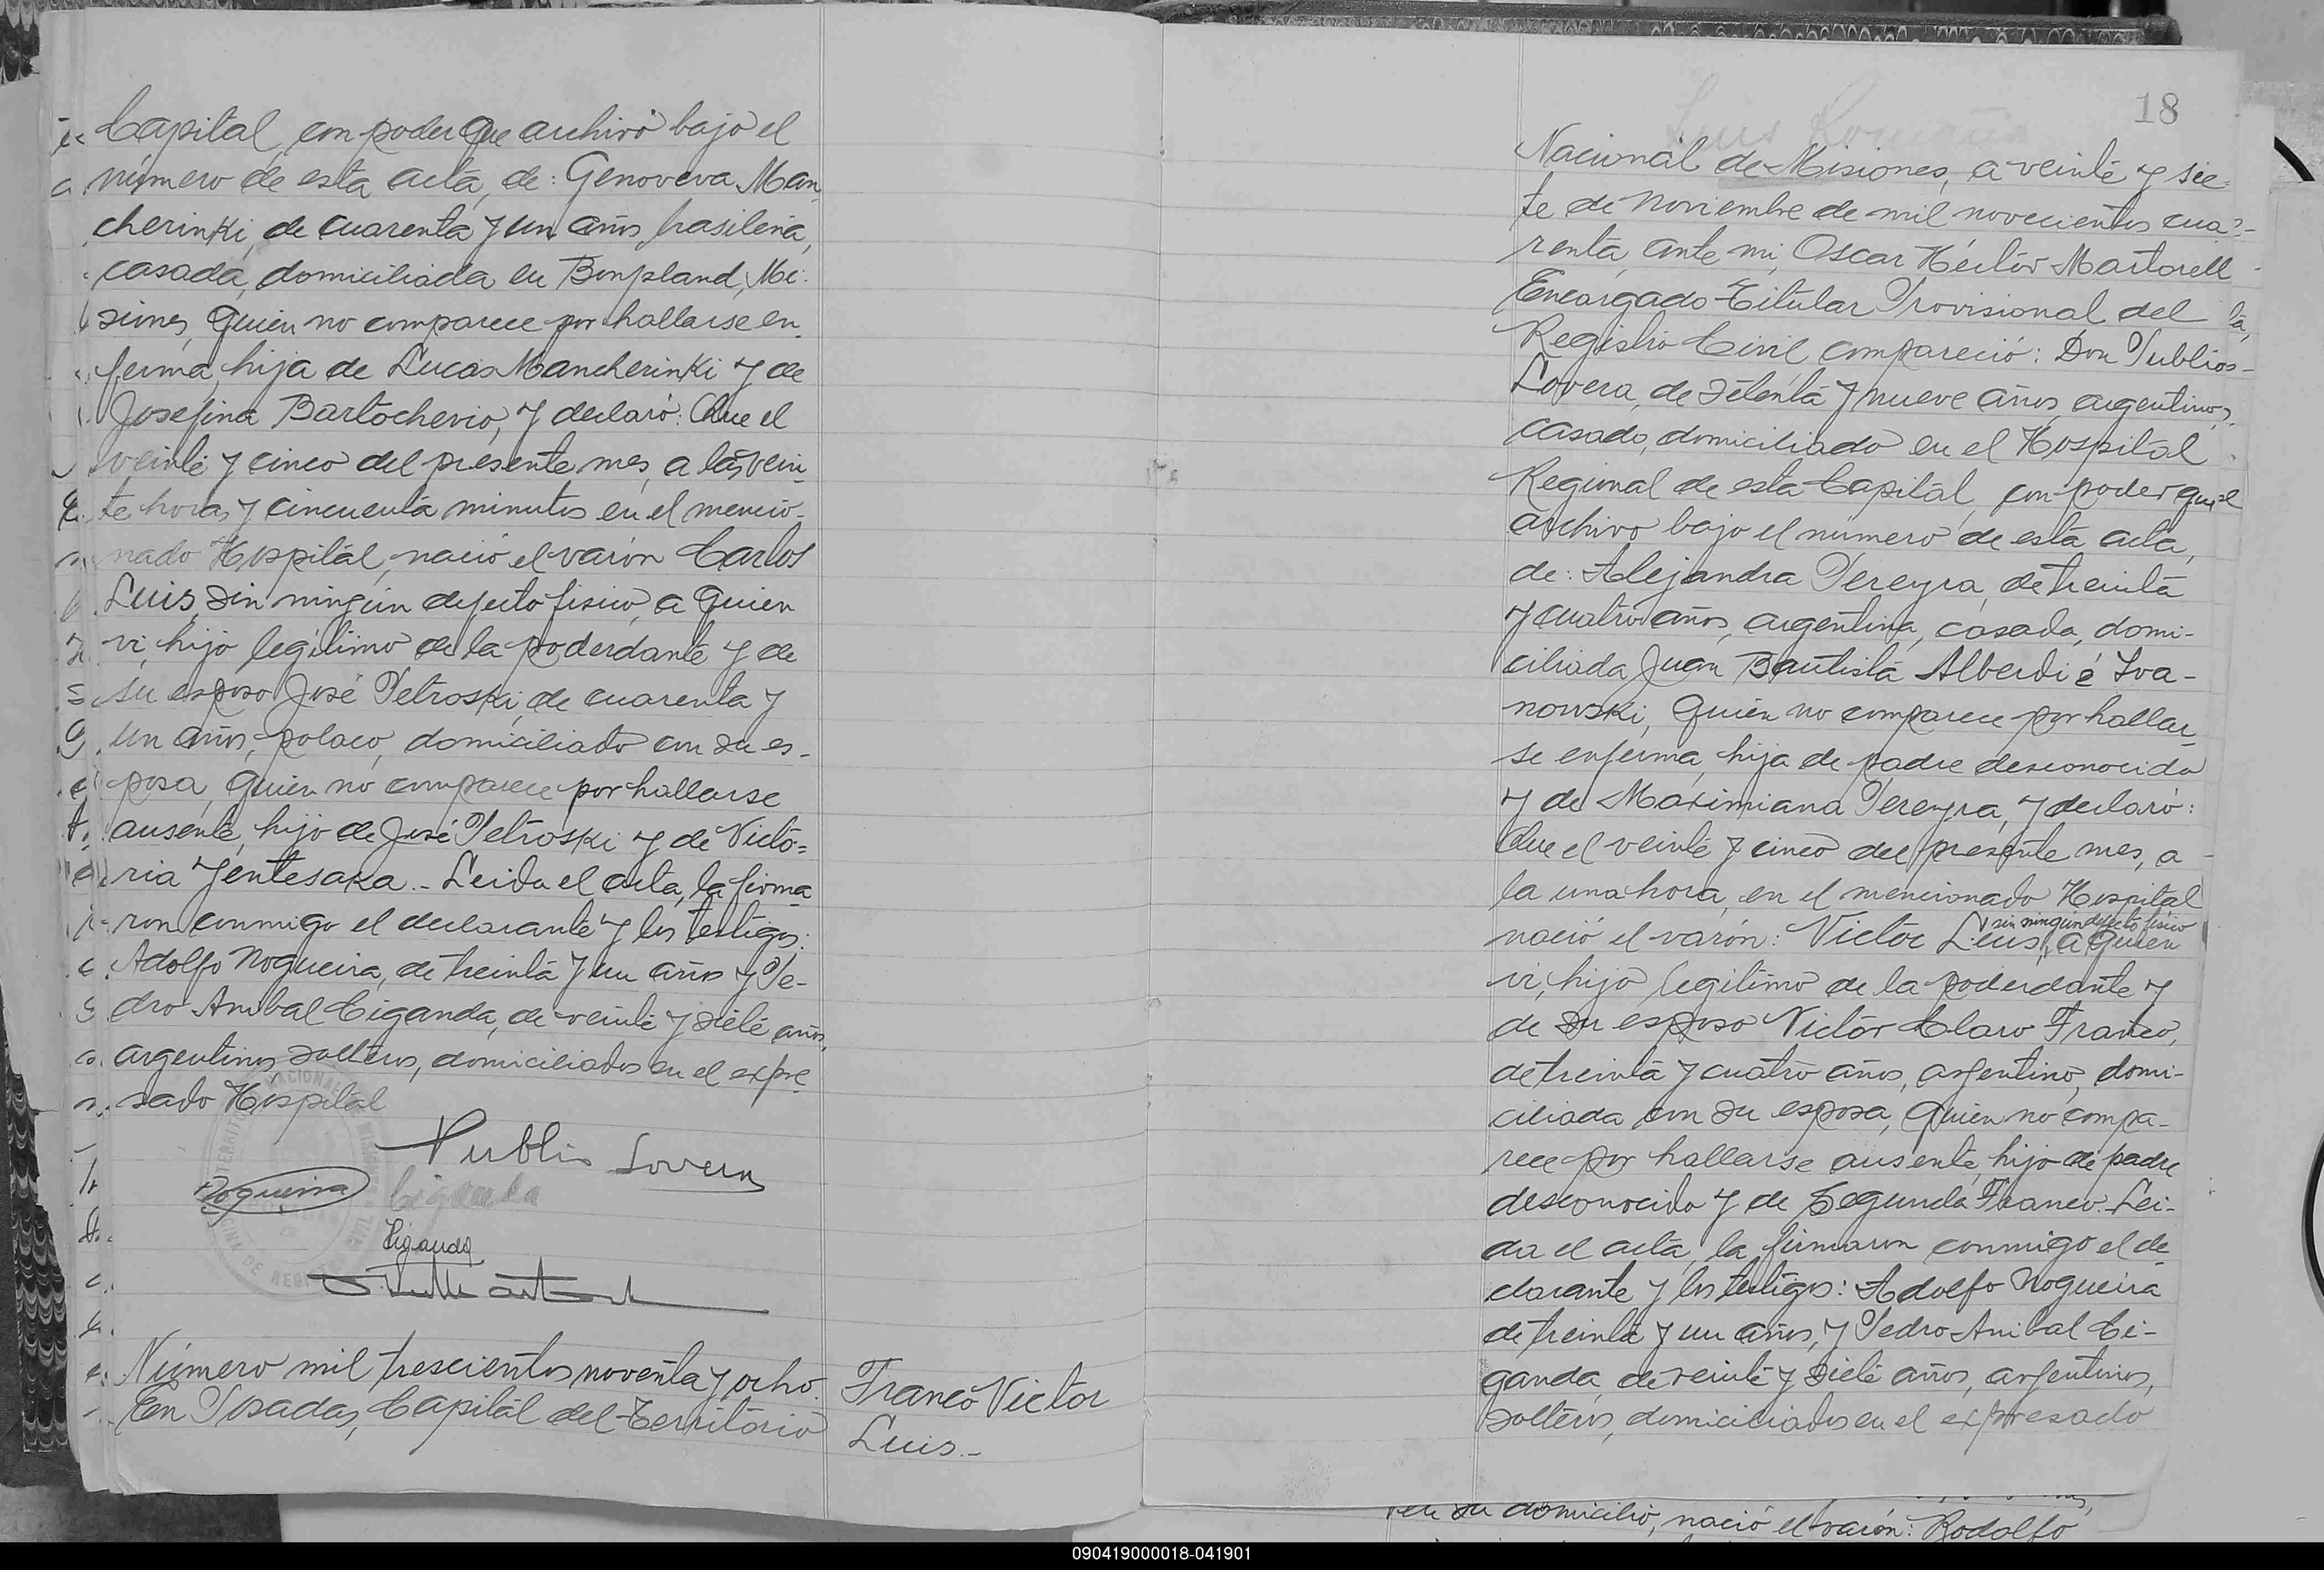 Capital, con poder que archivo bajo el
número de esta acta, de: Genoveva Man
cherinki, de cuarenta y un años, brasileña,
casada, domiciliada en Bonpland, Mi-
siones, quien no comparece por hallarse en-
ferma, hija de Lucas Mancherinki y de
Josefina Bartochevio, y declaró: Que el
veinte y cinco del presente mes, a las vein-
te horas y cincuenta minutos en el mencio-
nado Hospital, nació el varón Carlos
Luis, sin ningún defecto físico, a quien
vi, hijo legítimo de la poderdante y de
su esposo José Petroski, de cuarenta y
un años, polaco, domiciliado con su es-
posa, quien no comparece por hallarse
ausente, hijo de José Petroski y de Victo=
ria Yentesaka.- Leida el acta, la firma
ron conmigo el declarante y los testigos:
Adolfo Nogueira, de treinta y un años y Pe-
dro Anibal Ciganda, de veinte y siete años,
argentinos, solteros, domiciliados en el expre
sado Hospital
Publio Lovera
Nogueira
Ciganda
Ciganda
Número mil trescientos noventa y ocho.
En Posadas, Capital del Territorio
Franco Victor
Luis.-
18
Nacional de Misiones, a veinte y sie-
te de Noviembre de mil novecientos cua-
renta, ante mi, Oscar Héctor Martorell
Encargado Titular Provisional del
Registro Civil, compareció: Don Publio
Lovera, de setenta y nueve años, argentino,
casado, domiciliado en el Hospital
Regional de esta Capital, con poder que
archivo bajo el número de esta acta,
de: Alejandra Pereyra, de treinta
y cuatro años, argentina, casada, domi-
ciliada Juan Bautista Alberdi é Iva-
nowski, quien no comparece por hallar
se enferma, hija de padre desconocido
y de Maximiana Pereyra, y declaró:
Que el veinte y cinco del presente mes, a
la una hora, en el mencionado Hospital
sin ningún defecto físico
nació el varón: Victor Luis, a quien
vi, hijo legítimo de la poderdante y
de su esposo Victor Claro Franco,
de treinta y cuatro años, argentino, domi-
ciliada con su esposa, quien no compa-
rece por hallarse ausente, hijo de padre
desconocido y de Segunda Franco. Lei-
da el acta, la firmaron conmigo el de
clarante y los testigos: Adolfo Nogueira
de treinta y un años, y Pedro Anibal Ci-
ganda, de veinte y siete años, argentinos,
solteros, domiciliados en el expresado
en su domicilio, nació el varón: Rodolfo
090419000018-041901